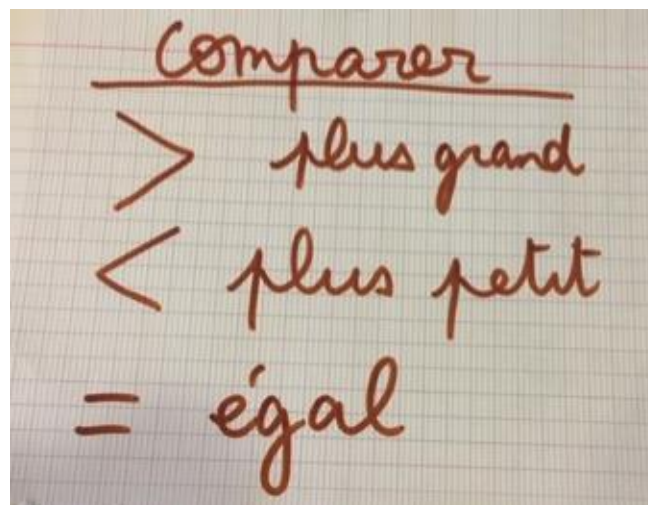 Comparer
> plus grand
< plus petit
= égal